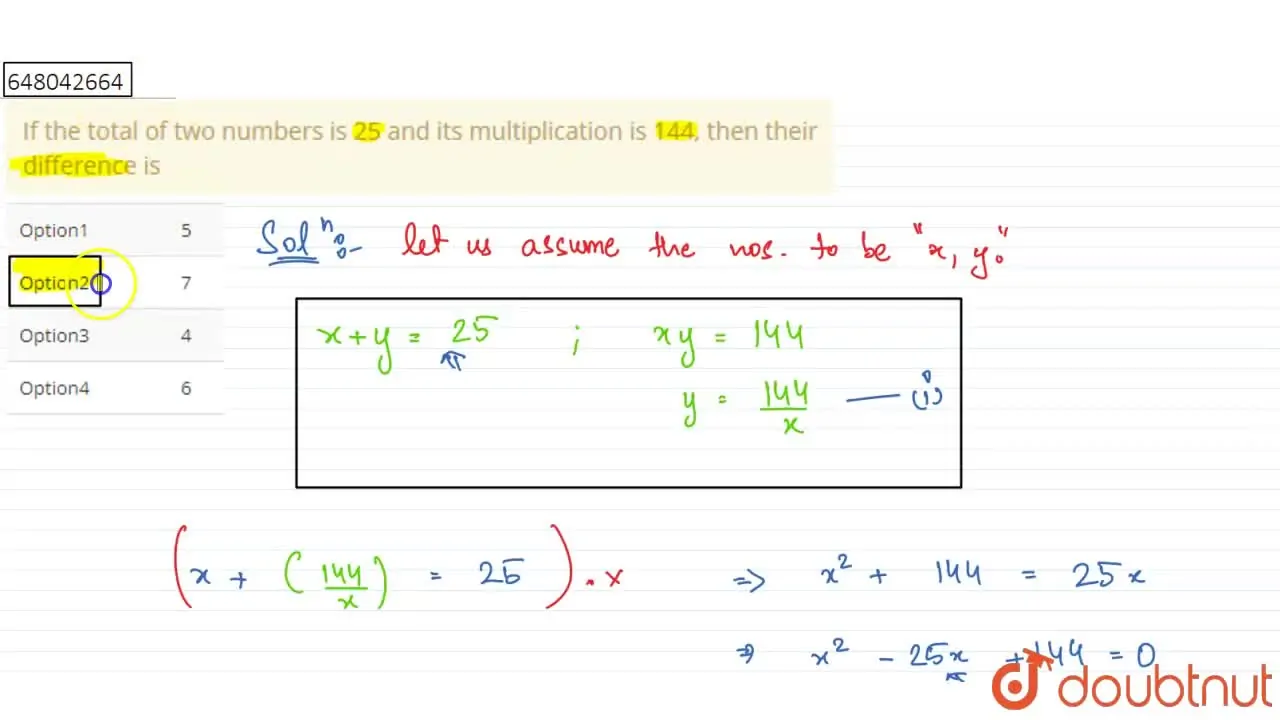 648042664
If the total of two numbers is 25 and its multiplication is 144, then their
difference is
Option1 5
Option2 7
Option3 4
Option4 6
Solⁿ:- let us assume the nos. to be "x, y."
x+y = 25 ; xy = 144
y = 144/x — (i)
(x + (144/x) = 25) . x => x² + 144 = 25x
=> x² - 25x + 144 = 0
doubtnut